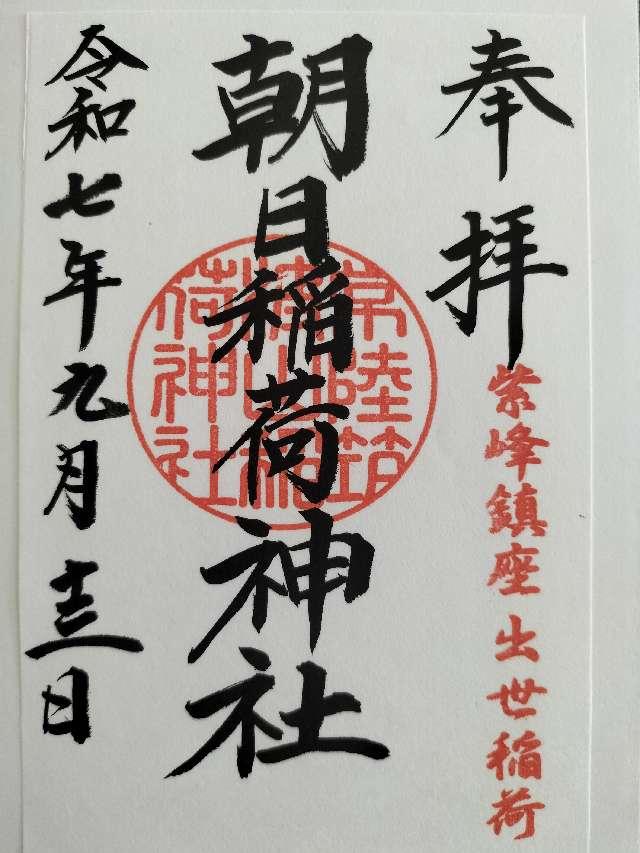 奉拝
紫峰鎮座 出世稲荷
朝日稲荷神社
常陸筑
荷神社
令和七年九月十三日